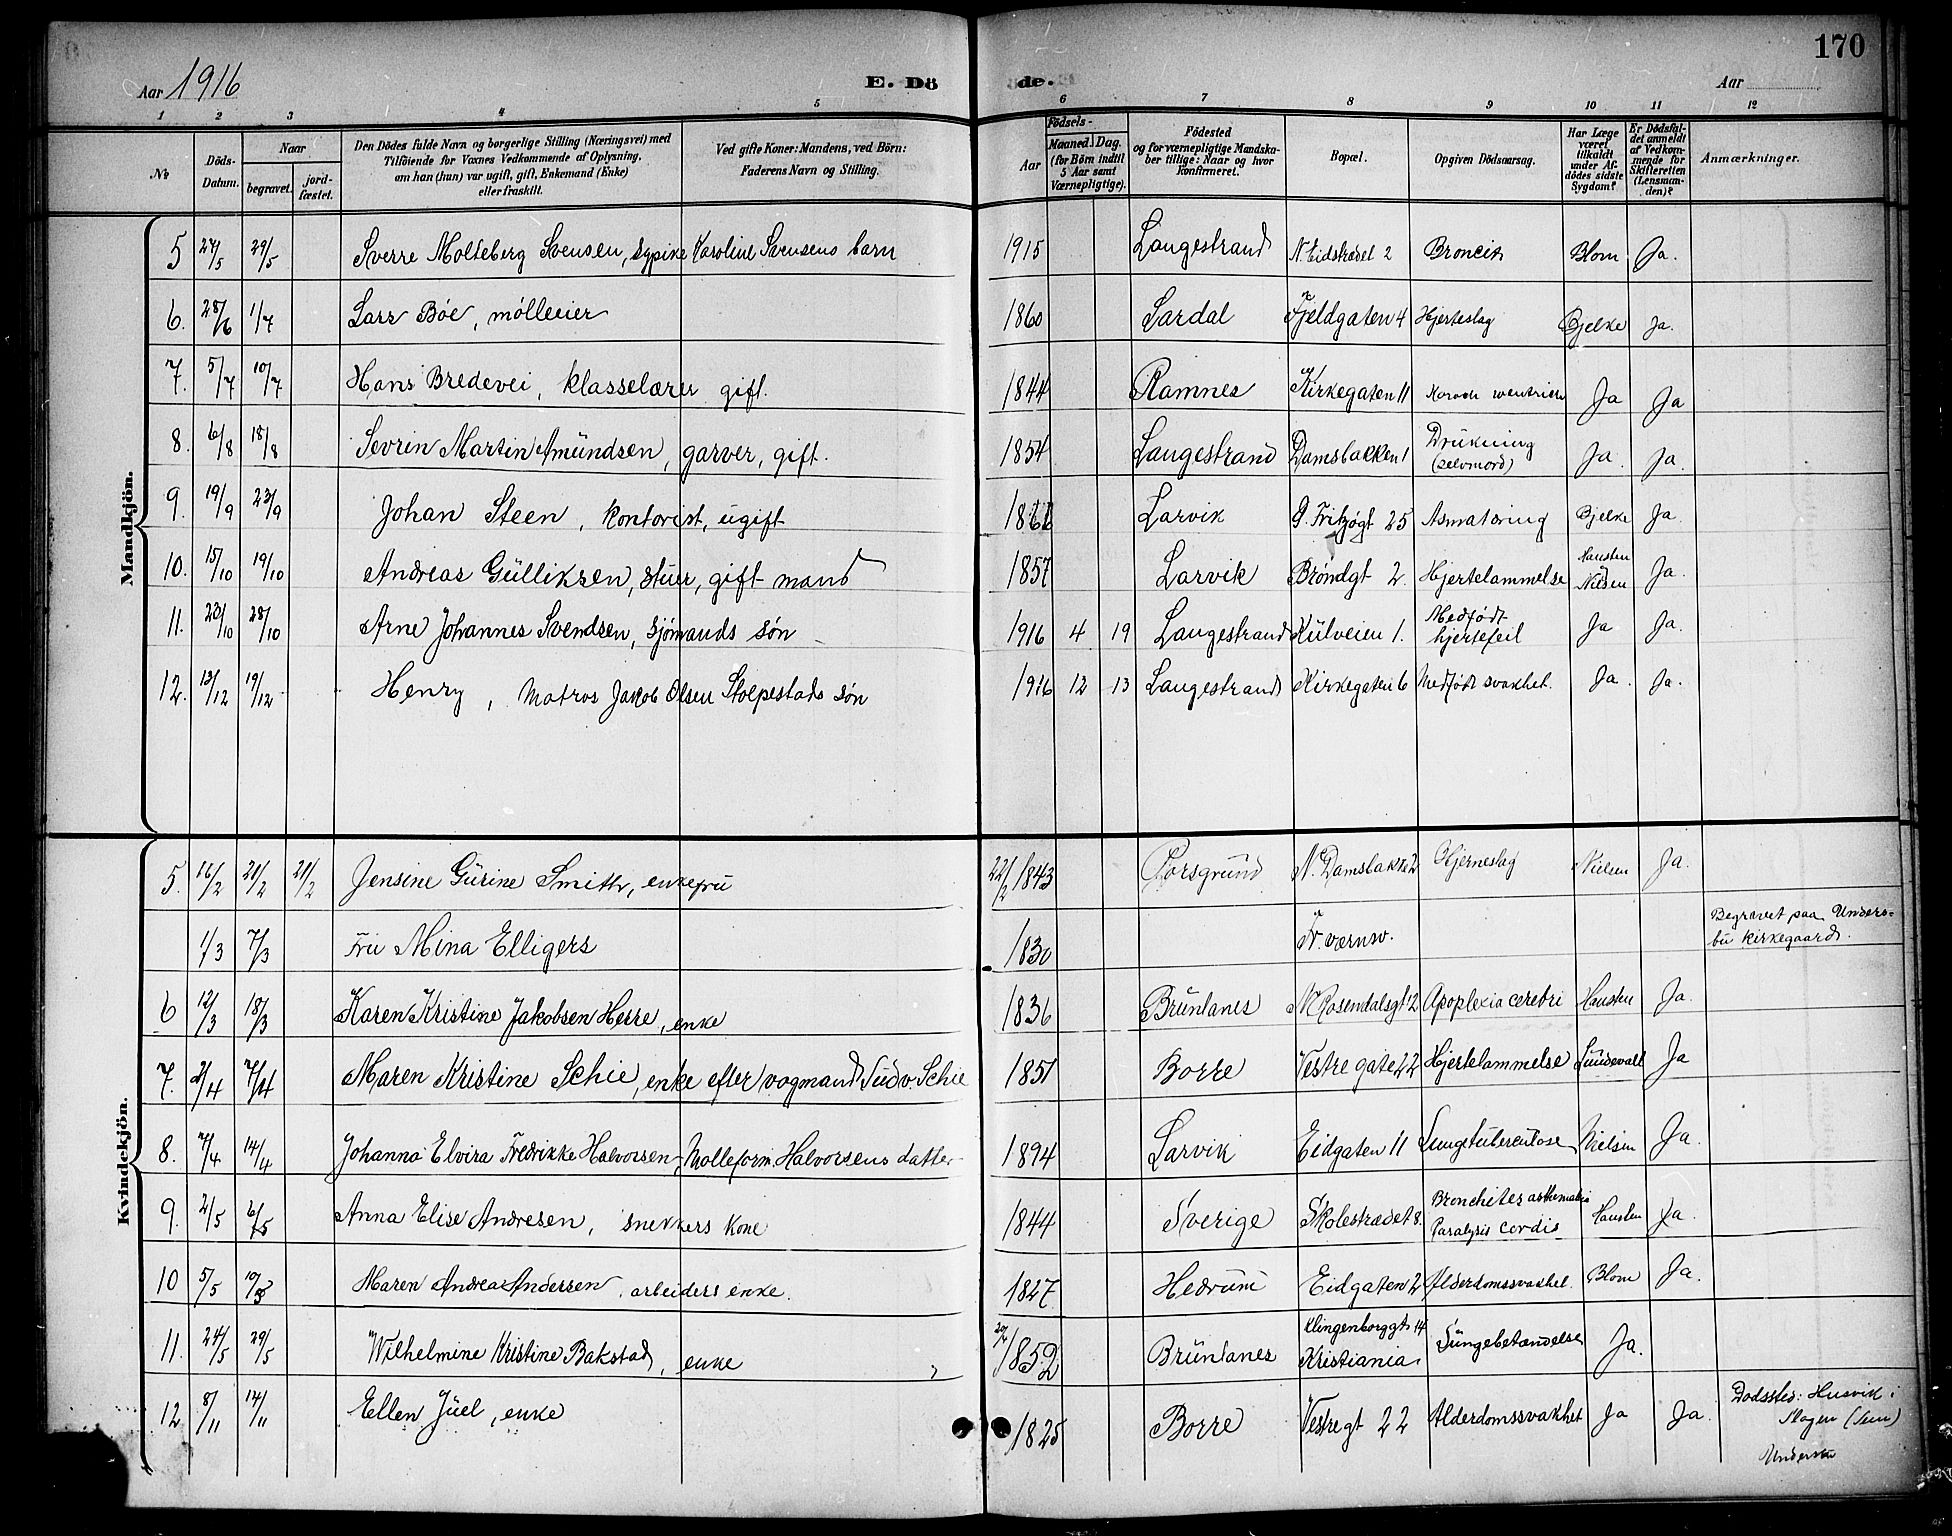 170
Aar 1916 E. Dö de. Aar
1 2 3 4 5 6 7 8 9 10 11 12
№ Döds-Datum. Naar begravet. jord-fæstet. Den Dödes fulde Navn og borgerlige Stilling (Næringsvei) med Tilföiende for Voxnes Vedkommende af Oplysning, om han (hun) var ugift, gift, Enkemand (Enke) eller fraskilt. Ved gifte Koner: Mandens, ved Börn: Faderens Navn og Stilling. Födsels- Aar Maaned. Dag. (for Börn indtil 5 Aar samt Værnepligtige). Födested og for værnepligtige Mandskaber tillige: Naar og hvor konfirmeret. Bopæl. Opgiven Dödsaarsag. Har Læge været tilkaldt under Afdödes sidste Sygdom? Er Dödsfaldet anmeldt af Vedkommende for Skifteretten (Lensmanden)? Anmærkninger.
Mandkjön.
5 27/5 29/5 Sverre Molteberg Svensen, sypike Karoline Svensens barn 1915 Langestrand N. Eidstrædet 2 Broncit Blom Ja.
6. 28/6 1/7 Lars Bøe, mølleeier 1860 Sardal Fjeldgaten 4 Hjerteslag Bjelke Ja.
7. 5/7 10/7 Hans Bredevei, klasselærer gift. 1844 Ramnes Kirkegaten 11 Ja Ja
8. 6/8 18/8 Sevrin Martin Amundsen, garver, gift. 1854 Langestrand Damsbakken 1 Drukning (selvmord) Ja. Ja.
9. 19/9 23/9 Johan Steen, kontorist, ugift Larvik G. Fritzøgt 25 Bjelke Ja.
10. 15/10 19/10 Andreas Gulliksen, stuer, gift mand 1857 Larvik Brøndgt 2. Hjertelammelse Hansten Nilsen Ja.
11. 23/10 28/10 Arne Johannes Svendsen, sjømands søn 1916 4 19 Langestrand Kulveien 1. Medfødt hjertefeil Ja Ja.
12. 13/12 19/12 Henry, Matros Jakob Olsen Stolpestads søn 1916 12 13 Langestrand Kirkegaten 6 Medfødt svakhet. Ja. Ja.
Kvindekjön.
5. 16/2 21/2 21/2 Jensine Gurine Smith, enkefru 22/2 1843 Porsgrund N. Damsbakke 2 Hjerneslag Nielsen Ja.
1/3 7/3 Fru Mina Elligers 1830 Fr. værnsv. Begravet paa Undersbu kirkegaard.
6 12/3 18/3 Karen Kristine Jakobsen Herre, enke 1836 Brunlanes N Rosendalsgt 12 Apoplexia cerebri Hansten Ja.
7. 2/4 7/4 Maren Kristine Schie, enke efter vogmand Ludv. Schie 1851 Borre Vestre gate 22 Hjertelammelse Sundevall Ja
8. 7/4 14/4 Johanna Elvira Fredrikke Halvorsen, Mølleform. Halvorsens datter 1894 Larvik Eidgaten 11 Lungetuberculose Nielsen Ja.
9. 2/5 6/5 Anna Elise Andresen, snekkers kone 1844 Sverige Skolestrædet 8. Bronchites asthmatica Paralysis cordis Hansten Ja.
10 5/5 10/5 Maren Andrea Andersen, arbeiders enke. 1827 Hedrum Eidgaten 2 Alderdomssvakhet. Blom Ja.
11. 24/5 29/5 Wilhelmine Kristine Bakstad, enke 1852 Brunlanes Klingenborggt 14 Kristiania. Lungebetændelse Ja.
12 8/11 14/11 Ellen Juel, enke 1825 Borre Vestregt 22 Alderdomssvakhet Ja Ja. Dødssted: Husvik i Slagen (Sem) Undersbu